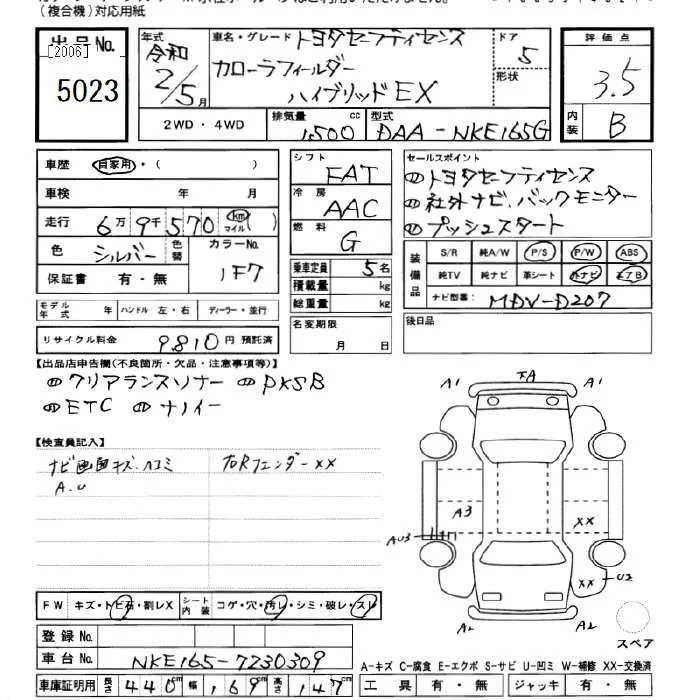 (複合機)対応用紙
出品No.
[2006]
5023
年式
令和
2/5月
車名・グレード トヨタセーフティセンス
カローラフィールダー
ハイブリッドEX
ドア
5
形状
評価点
3.5
内装
B
2WD・4WD
排気量 cc
1,500
型式
DAA-NKE165G
車歴
自家用・( )
車検 年 月
走行 6万9千570 km マイル ( )
色 シルバー
色替
カラーNo.
1F7
保証書 有・無
モデル年式 年 ハンドル 左・右 ディーラー・並行
リサイクル料金 9810円 預託済
シフト
FAT
冷房
AAC
燃料
G
乗車定員 5名
積載量 kg
総重量 kg
名変期限
月 日
セールスポイント
トヨタセーフティセンス
社外ナビ.バックモニター
プッシュスタート
装備品
S/R 純A/W P/S P/W ABS
純TV 純ナビ 革シート 外ナビ エアB
ナビ型番: MDV-D207
後日品
【出品店申告欄(不良箇所・欠品・注意事項等)】
クリアランスソナー PKSB
ETC ナノイー
【検査員記入】
ナビ画面キズ.ヘコミ
A.U
右Rフェンダー××
A1
TA
A1
A3
AU3
XX
XX
U2
A2
A2
スペア
FW キズ・トビ石・割レX
シート内装 コゲ・穴・汚レ・シミ・破レ・スレ
登録No.
車台No. NKE165-7230309
車庫証明用 長さ 440cm 幅 169cm 高さ 147cm
A-キズ C-腐食 E-エクボ S-サビ U-凹ミ W-補修 XX-交換済
工具 有・無 ジャッキ 有・無